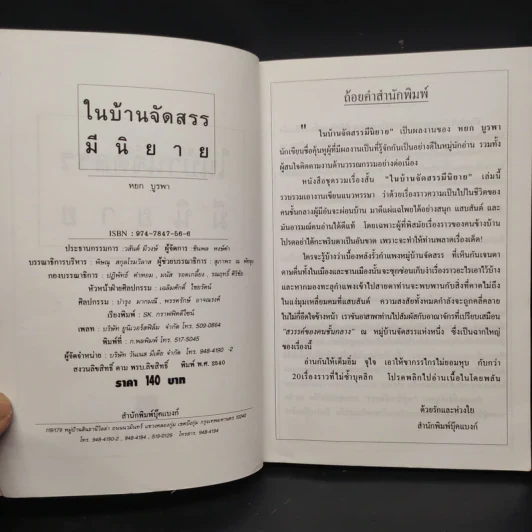 ในบ้านจัดสรร
มีนิยาย
หยก บูรพา
ISBN : 974-7847-56-6
ประธานกรรมการ : วสันต์ มีวงษ์ ผู้จัดการ : ชินพล
บรรณาธิการบริหาร : พิษณุ ผู้ช่วยบรรณาธิการ : สุภาพร
กองบรรณาธิการ :
หัวหน้าฝ่ายศิลปกรรม : เฉลิมศักดิ์ ไชยรัตน์
ศิลปกรรม : บำรุง
เรียงพิมพ์ : SK. กราฟฟิคดีไซน์
เพลท : บริษัท ยูนิเวอร์ซพริ้นท์ จำกัด โทร. 509-0864
พิมพ์ที่ : ก.พลพิมพ์ โทร. 517-5045
ผู้จัดจำหน่าย : บริษัท จำกัด โทร. 948-4190 -2
สงวนลิขสิทธิ์ ตาม พรบ.ลิขสิทธิ์ พิมพ์ พ.ศ. 2540
ราคา 140 บาท
สำนักพิมพ์บุ๊คแบงก์
โทร. 948-4190-2 , 948-4194 , โทรสาร 948-4194
ถ้อยคำสำนักพิมพ์
" ในบ้านจัดสรรมีนิยาย" เป็นผลงานของ หยก บูรพา
นักเขียนชื่อคุ้นหูผู้ที่มีผลงานเป็นที่รู้จักกันเป็นอย่างดีในหมู่นักอ่าน รวมทั้ง
ผู้สนใจติดตามงานด้านวรรณกรรมอย่างต่อเนื่อง
หนังสือชุดรวมเรื่องสั้น "ในบ้านจัดสรรมีนิยาย" เล่มนี้
รวบรวมเอางานเขียนแนวหรรษา ว่าด้วยเรื่องราวความเป็นไปในชีวิตของ
คนชั้นกลางผู้มีอันจะผ่อนบ้าน มาตีแผ่แฉโพยได้อย่างสนุก แสบสันต์ และ
มันอารมณ์คนอ่านได้ดีแท้ โดยเฉพาะผู้ที่พิสมัยเรื่องราวของคนข้างบ้าน
โปรดอย่าได้กะพริบตาเป็นอันขาด เพราะจะทำให้ท่านพลาดเรื่องเด็ด!
ใครจะรู้บ้างว่าเบื้องหลังรั้วกำแพงหมู่บ้านจัดสรร ที่เห็นกันเจนตา
ดาษดื่นทั้งในเมืองและชานเมืองนั้นจะซุกซ่อนเก็บงำเรื่องราวอะไรเอาไว้บ้าง
และหากมองทะลุกำแพงเข้าไปสายตาท่านจะพบพานกับสิ่งที่คาดไม่ถึง
ในแง่มุมเหลี่ยมคมที่แสบสันต์ ความสงสัยทั้งหมดกำลังจะถูกคลี่คลาย
ในไม่กี่อึดใจข้างหน้า เราขันอาสพาท่านไปสัมผัสกับอาณาจักรที่เปรียบเสมือน
"สวรรค์ของคนชั้นกลาง" ณ หมู่บ้านจัดสรรแห่งหนึ่ง ซึ่งเป็นฉากใหญ่
ของเรื่องนี้
อ่านกันให้เต็มอิ่ม จุใจ เอาให้ขากรรไกรไม่ยอมหุบ กับกว่า
20เรื่องราวที่ไม่ซ้ำบุคลิก โปรดพลิกไปอ่านเนื้อในโดยพลัน
ด้วยรักและห่วงใย
สำนักพิมพ์บุ๊คแบงก์